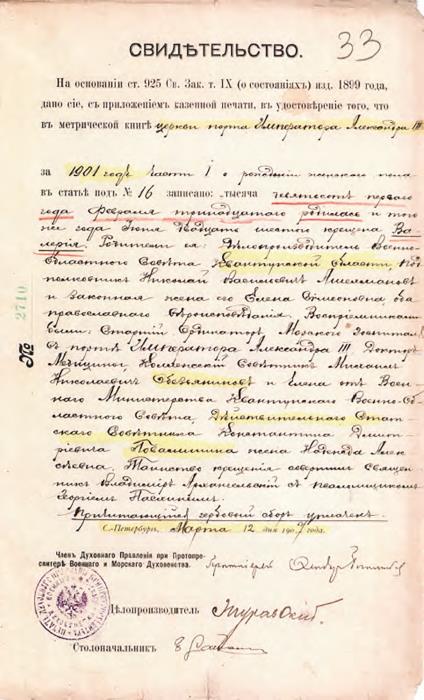 СВИДѢТЕЛЬСТВО. 33
На основаніи ст. 925 Св. Зак. т. IX (о состояніяхъ) изд. 1899 года,
дано сіе, съ приложеніемъ казенной печати, въ удостовѣреніе того, что
въ метрической книгѣ церкви порта Императора Александра III
за 1901 годъ части I о рожденіи женскаго пола
въ статьѣ подъ № 16 записано: тысяча девятьсотъ перваго
года Февраля тринадцатаго родилась и того
же года Іюня двадцать шестого крещена Ва-
лерія. Родители ея: Дѣлопроизводитель Военно-
Областного Совѣта Квантунской Области, Под-
полковникъ Николай Васильевичъ
и законная жена его Елена оба
православнаго вѣроисповѣданія. Воспріемниками
были: Старшій Ординаторъ Морского госпиталя
въ портѣ Императора Александра III Докторъ
Медицины, Коллежскій Совѣтникъ Михаилъ
Николаевичъ Обезьяниновъ и Елена отъ Воен-
наго Министерства Квантунскаго Военно-Об-
ластного Совѣта, Дѣйствительнаго Стат-
скаго Совѣтника Константина Дмит-
ріевича Повалишина жена Надежда Алек-
сѣевна. Таинство крещенія совершилъ священ-
никъ Владиміръ съ псаломщикомъ
Георгіемъ
Причитающійся гербовый сборъ уплаченъ.
С.-Петербургъ, Марта 12 дня 1907 года.
№ 2710
Членъ Духовнаго Правленія при Протопре-
свитерѣ Военнаго и Морского Духовенства.
Дѣлопроизводитель Журавскій
Столоначальникъ